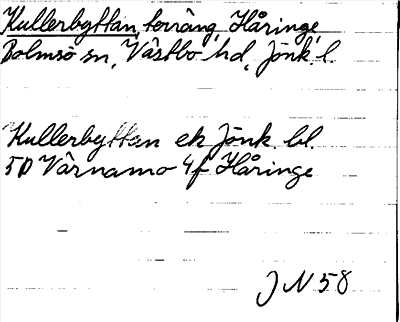 Kullerbyttan, terräng, Håringe,
Bolmsö sn, Västbo hd, Jönk. l.
Kullerbyttan ek Jönk. bl.
5D Värnamo 4f Håringe
J N 58